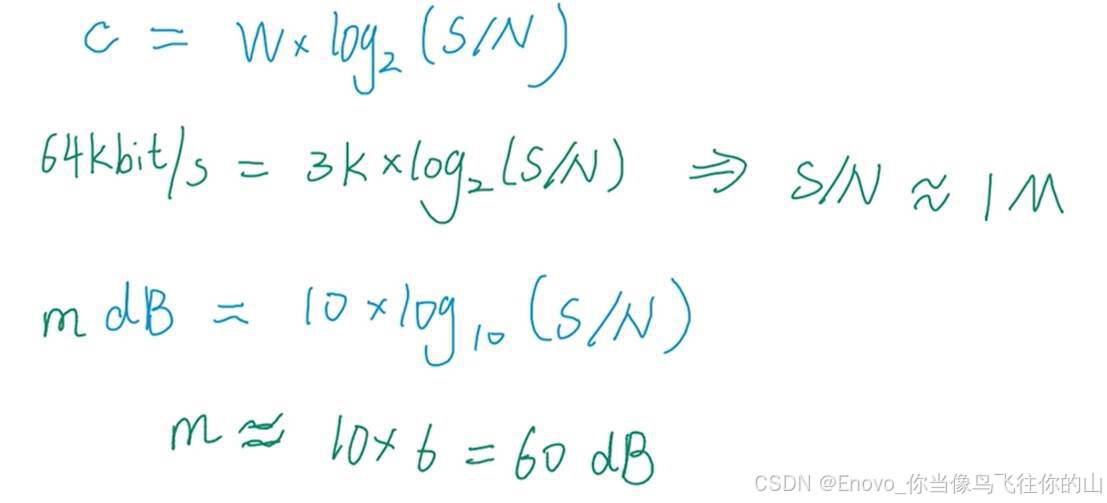 C = W × log₂ (S/N)
64kbit/s = 3K × log₂ (S/N) ⇒ S/N ≈ 1M
m dB = 10 × log₁₀ (S/N)
m ≈ 10 × 6 = 60 dB
CSDN @Enovo_你当像鸟飞往你的山